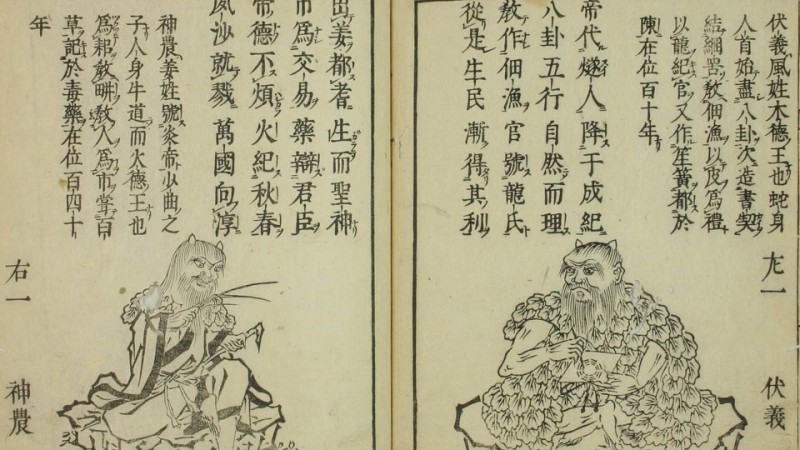 左一 伏羲
伏羲風姓木德王也蛇身
人首始畫八卦次造書契
結網罟敎佃漁以皮爲禮
以龍紀官又作笙簧都於
陳在位百十年
帝代燧人降于成紀
八卦五行自然而理
敎作佃漁官號龍氏
從是生民漸得其利
出姜都者生而聖神
市爲交易藥辯君臣
帝德不煩火紀秋春
夙沙就戮萬國向淳
神農姜姓號炎帝少曲之
子人身牛道而火德王也
爲耒敎畊敎人爲市掌百
草記於毒藥在位百四十
年
右一 神農